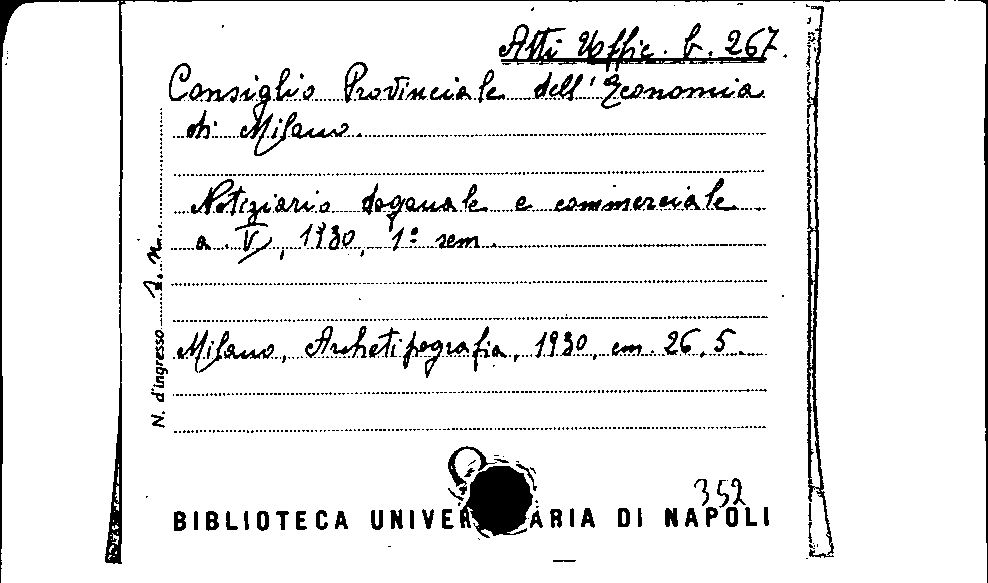 Atti Uffic. b. 267.
Consiglio Provinciale dell'Economia
di Milano.
Notiziario doganale e commerciale
a. V, 1930, 1º sem.
Milano, Archetipografia, 1930, cm. 26,5.
N. d'ingresso s. n.
352
BIBLIOTECA UNIVER ARIA DI NAPOLI